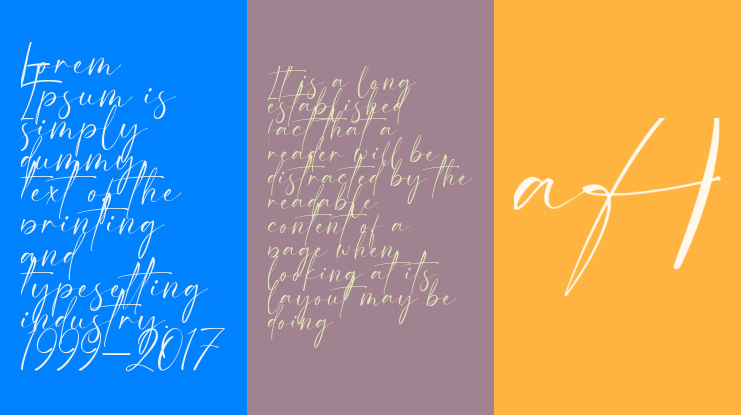 Lorem
Ipsum is
simply
dummy
text of the
printing
and
typesetting
industry.
1999–2017
It is a long
established
fact that a
reader will be
distracted by the
readable
content of a
page when
looking at its
layout may be
doing
afH